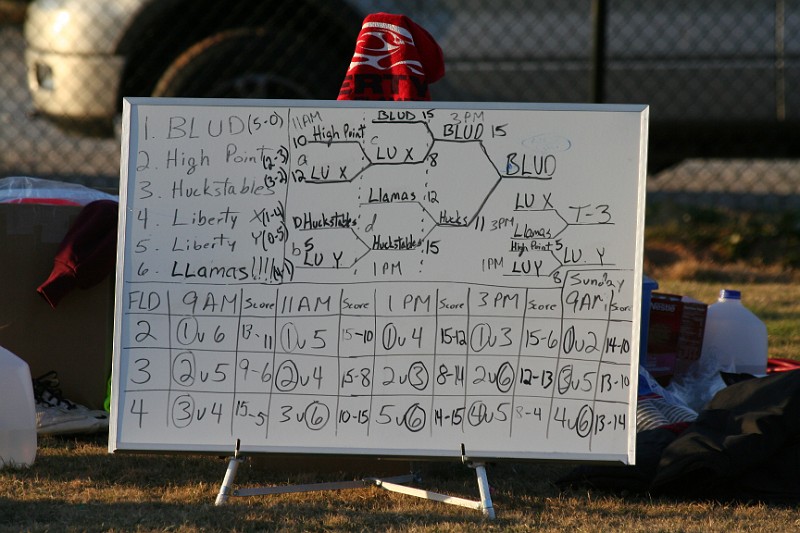 ERTY
1. BLUD (5-0)
2. High Point (2-3)
3. Huckstables (3-2)
4. Liberty X (1-4)
5. Liberty Y (0-5)
6. LLamas!!!!
11 AM
10 High Point
a
12 LU X
Huckstables
b 5
LU Y
BLUD 15
c
LU X 8
Llamas 12
d
Huckstables 15
1 PM
3 PM
BLUD 15
Hucks 11
BLUD
LU X
3PM
Llamas
T-3
High Point 5
1PM
LUY 8
LU. Y
Sunday
FLD 9AM Score 11 AM Score 1 PM Score 3 PM Score 9AM Score
2 1 v 6 13-11 1 v 5 15-10 1 v 4 15-12 1 v 3 15-6 1 v 2 14-10
3 2 v 5 9-6 2 v 4 15-8 2 v 3 8-14 2 v 6 12-13 3 v 5 13-10
4 3 v 4 15-5 3 v 6 10-15 5 v 6 14-15 4 v 5 8-4 4 v 6 13-14